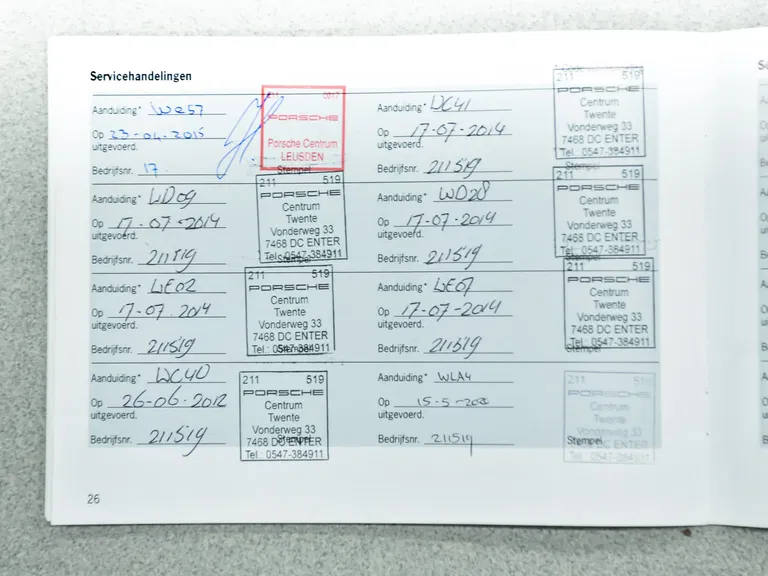 Servicehandelingen
Aanduiding* We57
Op 23-04-2015
uitgevoerd.
Bedrijfsnr. 17
211 0017
PORSCHE
Porsche Centrum
LEUSDEN
Stempel
Aanduiding*
Op 17-07-2014
uitgevoerd.
Bedrijfsnr. 211519
211 519
PORSCHE
Centrum
Twente
Vonderweg 33
7468 DC ENTER
Tel.: 0547-384911
Aanduiding* WD09
Op 17-07-2014
uitgevoerd.
Bedrijfsnr. 211519
211 519
PORSCHE
Centrum
Twente
Vonderweg 33
7468 DC ENTER
Tel.: 0547-384911
Stempel
Aanduiding* WD28
Op 17-07-2014
uitgevoerd.
Bedrijfsnr. 211519
211 519
PORSCHE
Centrum
Twente
Vonderweg 33
7468 DC ENTER
Tel.: 0547-384911
Stempel
Aanduiding* WE02
Op 17-07-2014
uitgevoerd.
Bedrijfsnr. 211519
211 519
PORSCHE
Centrum
Twente
Vonderweg 33
7468 DC ENTER
Tel.: 0547-384911
Stempel
Aanduiding* WE07
Op 17-07-2014
uitgevoerd.
Bedrijfsnr. 211519
211 519
PORSCHE
Centrum
Twente
Vonderweg 33
7468 DC ENTER
Tel.: 0547-384911
Stempel
Aanduiding* WC40
Op 26-06-2012
uitgevoerd.
Bedrijfsnr. 211519
211 519
PORSCHE
Centrum
Twente
Vonderweg 33
7468 DC ENTER
Tel.: 0547-384911
Stempel
Aanduiding* WLA4
Op
uitgevoerd.
Bedrijfsnr. 211519
211 519
PORSCHE
Centrum
Twente
Vonderweg 33
7468 DC ENTER
Tel.: 0547-384911
Stempel
26